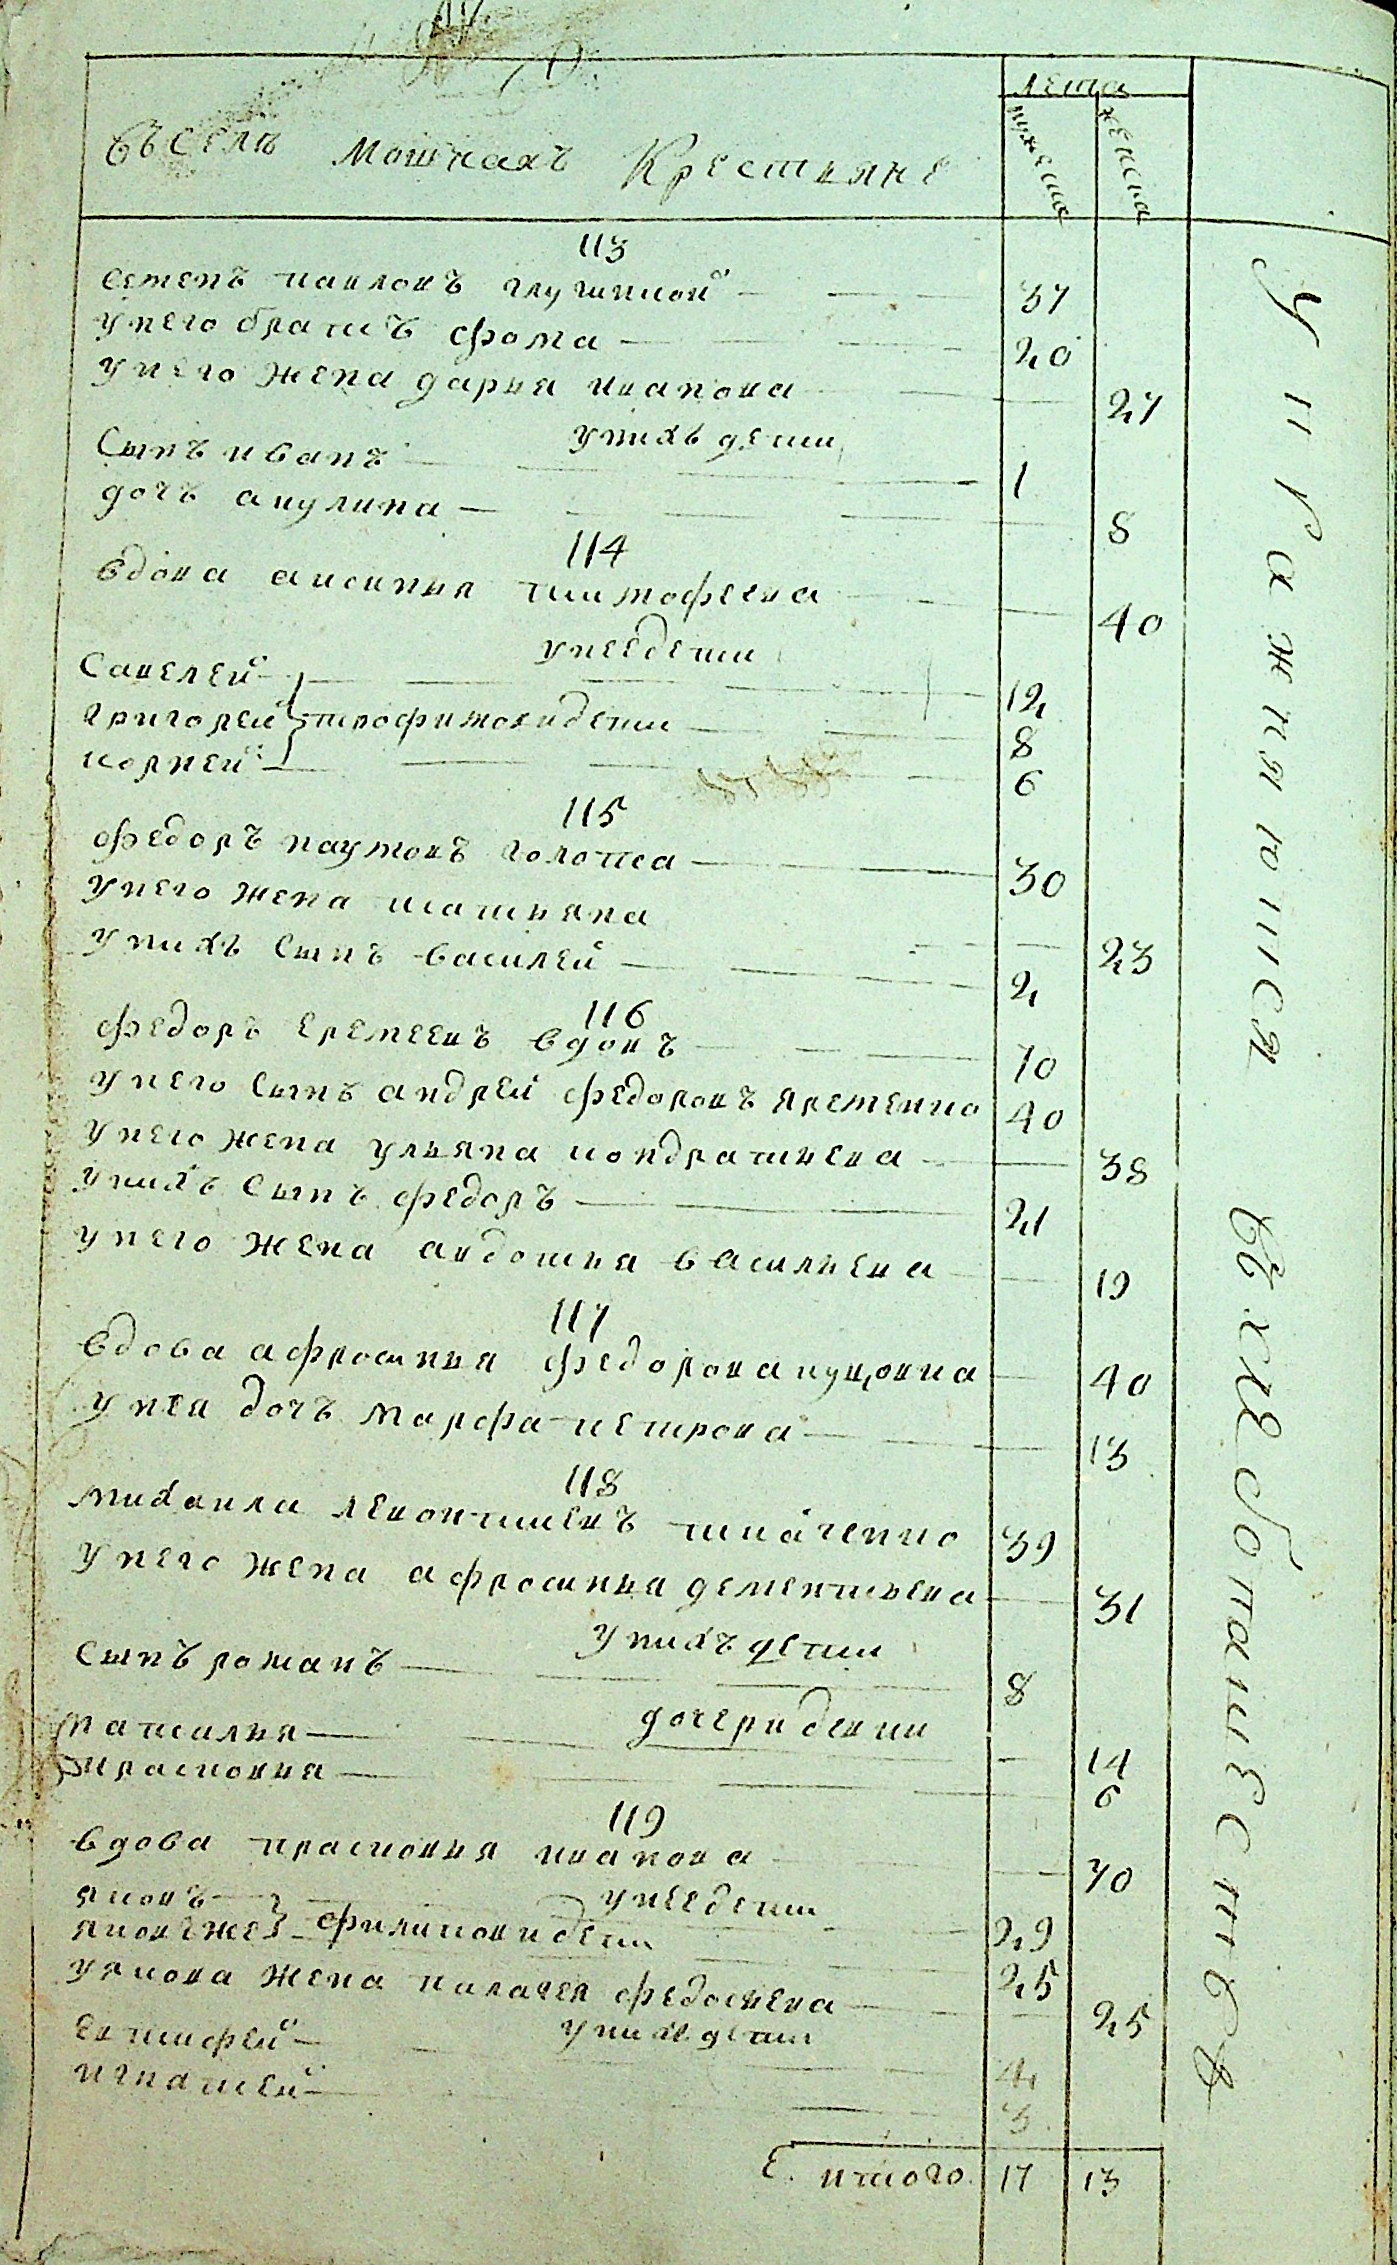 лета
мужеска
женска
въселе Мошнахъ Крестьяне
113
Семенъ павловъ глушкой 37
унего братъ фома 20
унего жена дарья иванова 27
унихъ дети
Сынъ иванъ 1
дочъ акулина 8
114
вдова аксинья тимофеева 40
унеедети
Савелей 12
григорей трофимовидети 8
корней 6
115
федоръ наумовъ голопса 30
унего жена татьяна 23
унихъ Сынъ василей 2
116
федоръ Еремеевъ вдовъ 70
унего Сынъ андрей федоровъ яременко 40
унего жена ульяна кондратьева 38
унихъ Сынъ федоръ 21
унего жена авдотья васильева 19
117
вдова афросинья федорова куцовка 40
унея дочъ марфа петрова 13
118
михаила левонтиевъ ткаченко 39
унего жена афросинья дементьева 31
унихъ дети
Сынъ романъ 8
дочеридевки
наталья 14
прасковья 6
119
вдова прасковья иванова 70
унеедети
яковъ 29
яковъже филиповидети 25
уякова жена палагея федосьева 25
унихъ дети
Евтифей 4
игнатей 3
итого 17 13
упражняются въхлебопашестве